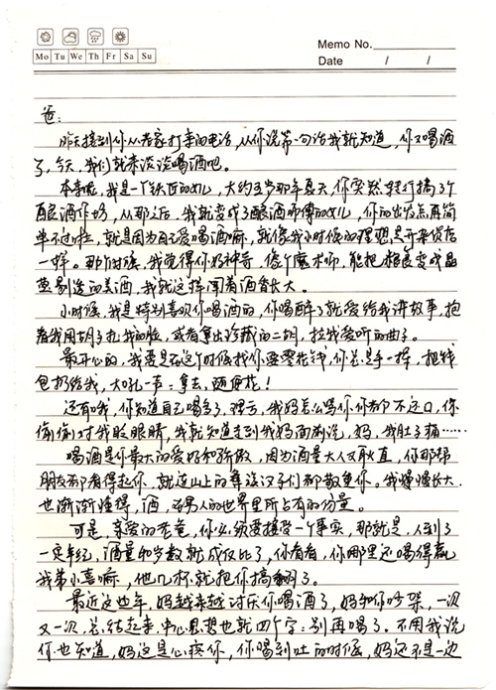 Memo No.
Mo Tu We Th Fr Sa Su
Date / /
爸:
昨天接到你从老家打来的电话,从你说第一句话我就知道,你又喝酒
了,今天,我们就来谈谈喝酒吧。
本来呢,我是一个铁匠的女儿,大约5岁那年夏天,你突然转行搞了个
酿酒作坊,从那以后,我就变成了酿酒师傅的女儿,你的出发点再简
单不过啦,就是因为自己爱喝酒嘛,就像我小时候的理想是开杂货店
一样。那个时候,我觉得你好神奇,像个魔术师,能把粮食变成晶
莹剔透的美酒,我就这样闻着酒香长大。
小时候,我是特别喜欢你喝酒的,你喝醉了就爱给我讲故事,抱
着我用胡子扎我的脸,或者拿出珍藏的二胡,拉我爱听的曲子。
最开心的,我要是在这个时候找你要零花钱,你总是手一挥,把钱
包扔给我,大吼一声:拿去,随便花!
还有时候,你知道自己喝多了,理亏,我妈怎么骂你你都不还口,你
偷偷对我眨眼睛,我就知道走到我妈面前说,妈,我肚子痛……
喝酒是你最大的爱好和骄傲,因为酒量大人又耿直,你那帮
朋友都看得起你,就连山上的彝族汉子们都敬重你。我慢慢长大,
也渐渐懂得,酒,在男人的世界里所占有的分量。
可是,亲爱的老爸,你必须要接受一个事实,那就是,人到了
一定年纪,酒量和岁数就成反比了,你看看,你哪里还喝得赢
我弟小喜嘛,他几杯就把你搞翻了。
最近这些年,妈越来越讨厌你喝酒了,妈和你吵架,一次
又一次,总结起来,中心思想也就四个字:别再喝了。不用我说
你也知道,妈这是心疼你,你喝到吐的时候,妈还不是一边